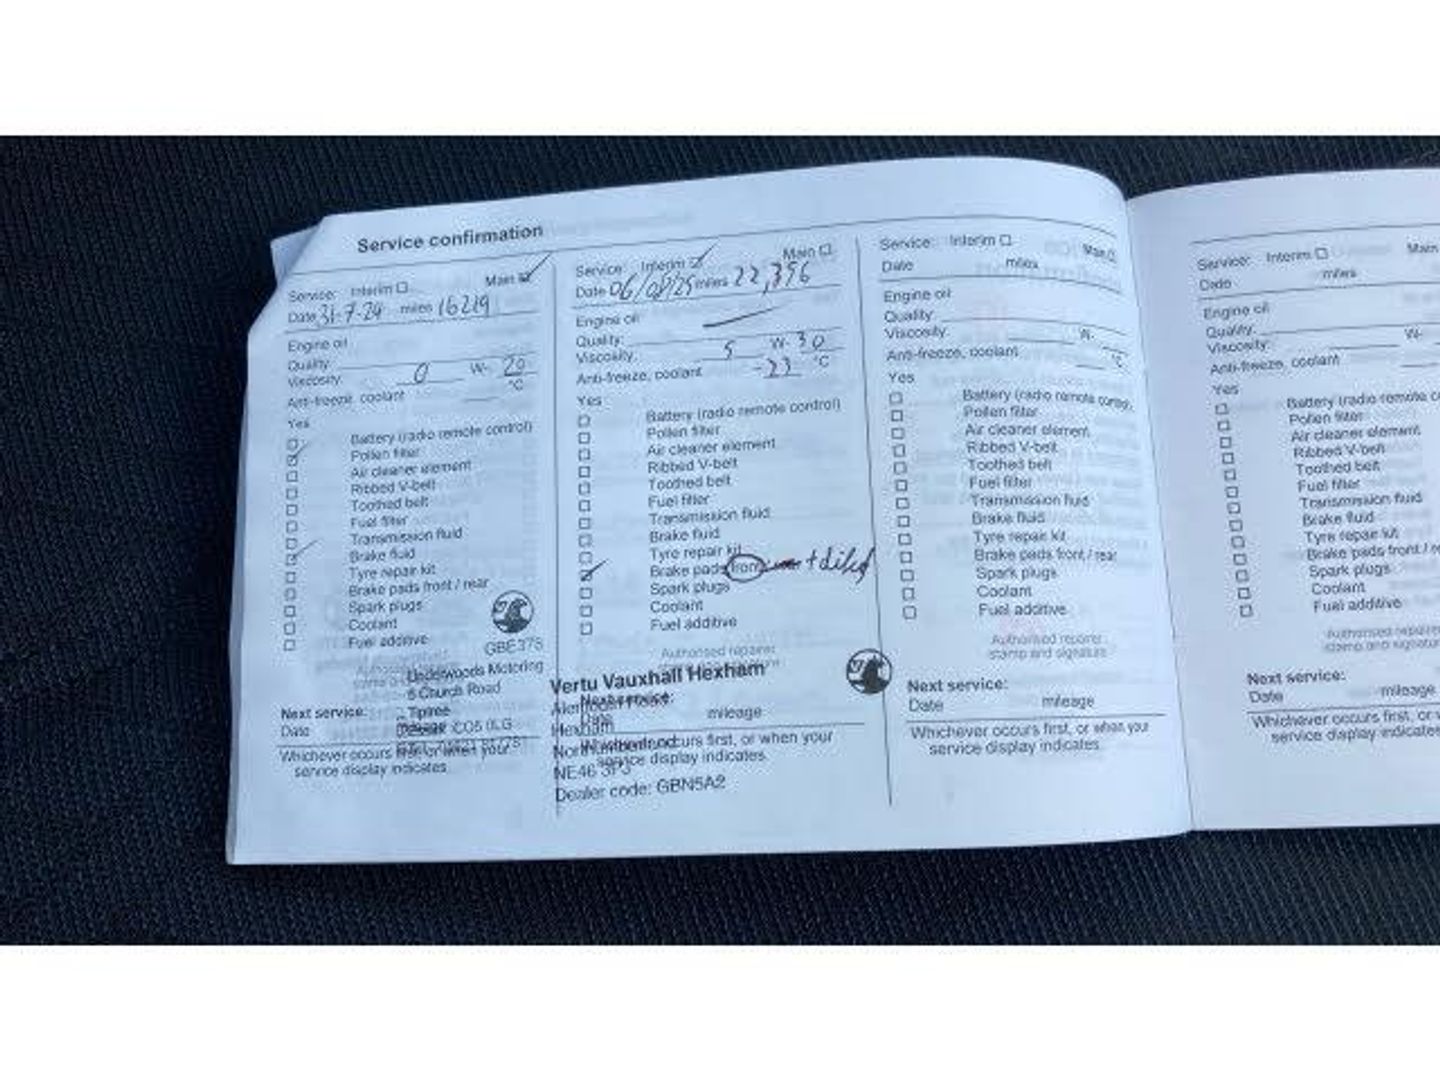 Service confirmation
Service: Interim Main
Date 31-7-24 miles 16219
Engine oil
Quality
Viscosity 0 W- 20
Anti-freeze, coolant °C
Yes
Battery (radio remote control)
Pollen filter
Air cleaner element
Ribbed V-belt
Toothed belt
Fuel filter
Transmission fluid
Brake fluid
Tyre repair kit
Brake pads front / rear
Spark plugs
Coolant
Fuel additive
GBE375
Underwoods Motoring
6 Church Road
Tiptree
CO5 0LG
Next service:
Date
Whichever occurs first, or when your
service display indicates.
Service: Interim Main
Date 06/08/25 miles 22,396
Engine oil
Quality:
Viscosity: 5 W- 30
Anti-freeze, coolant -23 °C
Yes
Battery (radio remote control)
Pollen filter
Air cleaner element
Ribbed V-belt
Toothed belt
Fuel filter
Transmission fluid
Brake fluid
Tyre repair kit
Brake pads front
Spark plugs
Coolant
Fuel additive
Authorised repairer
Vertu Vauxhall Hexham
Next service:
Hexham
Date mileage
Whichever occurs first, or when your
service display indicates.
NE46
Dealer code: GBN5A2
Service: Interim Main
Date miles
Engine oil
Quality:
Viscosity: W-
Anti-freeze, coolant °C
Yes
Battery (radio remote control)
Pollen filter
Air cleaner element
Ribbed V-belt
Toothed belt
Fuel filter
Transmission fluid
Brake fluid
Tyre repair kit
Brake pads front / rear
Spark plugs
Coolant
Fuel additive
Authorised repairer
stamp and signature
Next service:
Date mileage
Whichever occurs first, or when your
service display indicates.
Service: Interim Main
Date miles
Engine oil
Quality:
Viscosity: W-
Anti-freeze, coolant
Yes
Battery (radio remote
Pollen filter
Air cleaner element
Ribbed V-belt
Toothed belt
Fuel filter
Transmission fluid
Brake fluid
Tyre repair kit
Brake pads front /
Spark plugs
Coolant
Fuel additive
Authorised repairer
stamp and signature
Next service:
Date mileage
Whichever occurs first, or
service display indicates